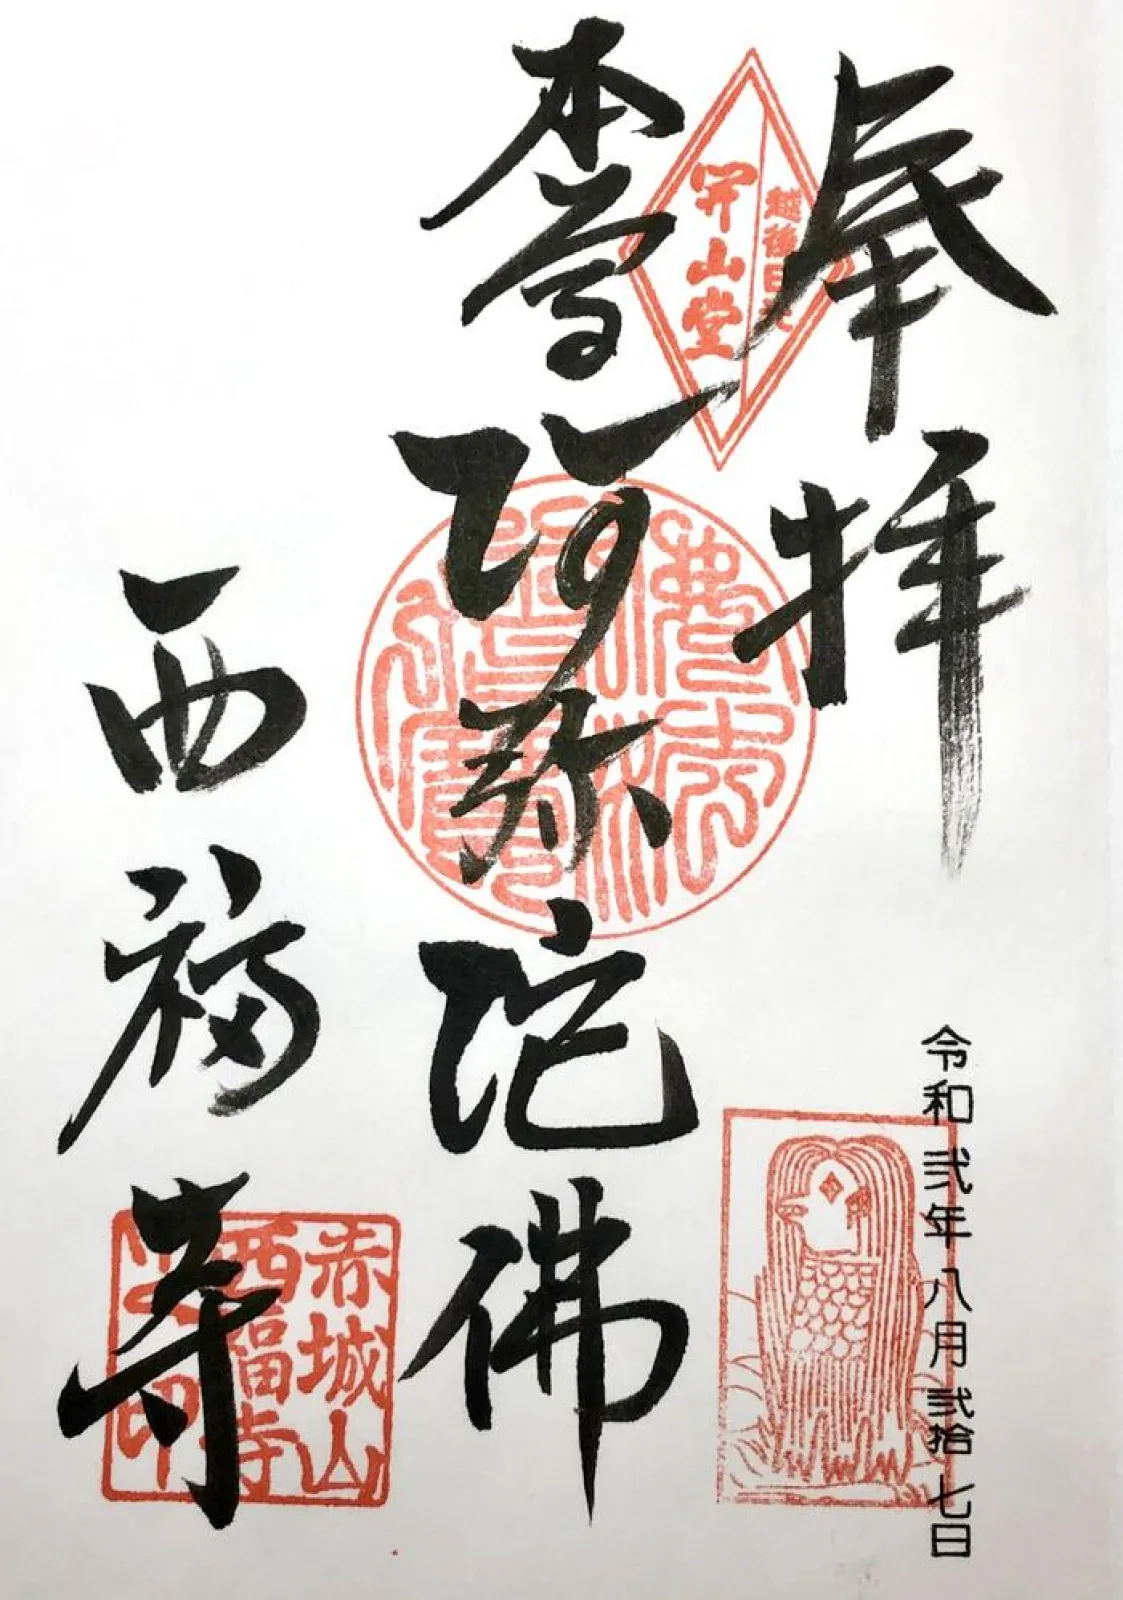 奉拝
越後日光
開山堂
令和弐年八月弐拾七日
本尊阿弥陀佛
佛法僧寶
西福寺
赤城山
西福寺
之印